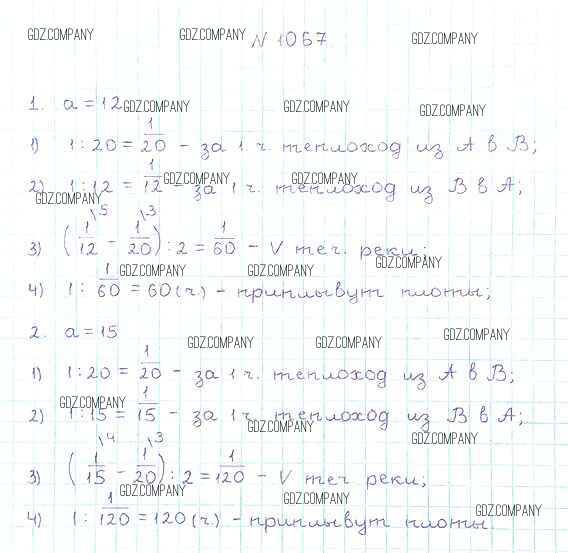 GDZ.COMPANY GDZ.COMPANY GDZ.COMPANY
N 1067
1. a = 12 GDZ.COMPANY GDZ.COMPANY GDZ.COMPANY
1) 1 : 20 = 1/20 – за 1 ч. теплоход из А в В;
2) 1 : 12 = 1/12 – за 1 ч. теплоход из В в А;
GDZ.COMPANY GDZ.COMPANY GDZ.COMPANY
3) (1/12 \5 – 1/20 \3) : 2 = 1/60 – V теч. реки;
GDZ.COMPANY GDZ.COMPANY GDZ.COMPANY
4) 1 : 1/60 = 60 (ч.) – приплывут плоты;
2. a = 15 GDZ.COMPANY GDZ.COMPANY GDZ.COMPANY
1) 1 : 20 = 1/20 – за 1 ч. теплоход из А в В;
GDZ.COMPANY
2) 1 : 15 = 1/15 – за 1 ч. теплоход из В в А;
GDZ.COMPANY GDZ.COMPANY
3) (1/15 \4 – 1/20 \3) : 2 = 1/120 – V теч реки;
GDZ.COMPANY GDZ.COMPANY GDZ.COMPANY
4) 1 : 1/120 = 120 (ч.) – приплывут плоты.